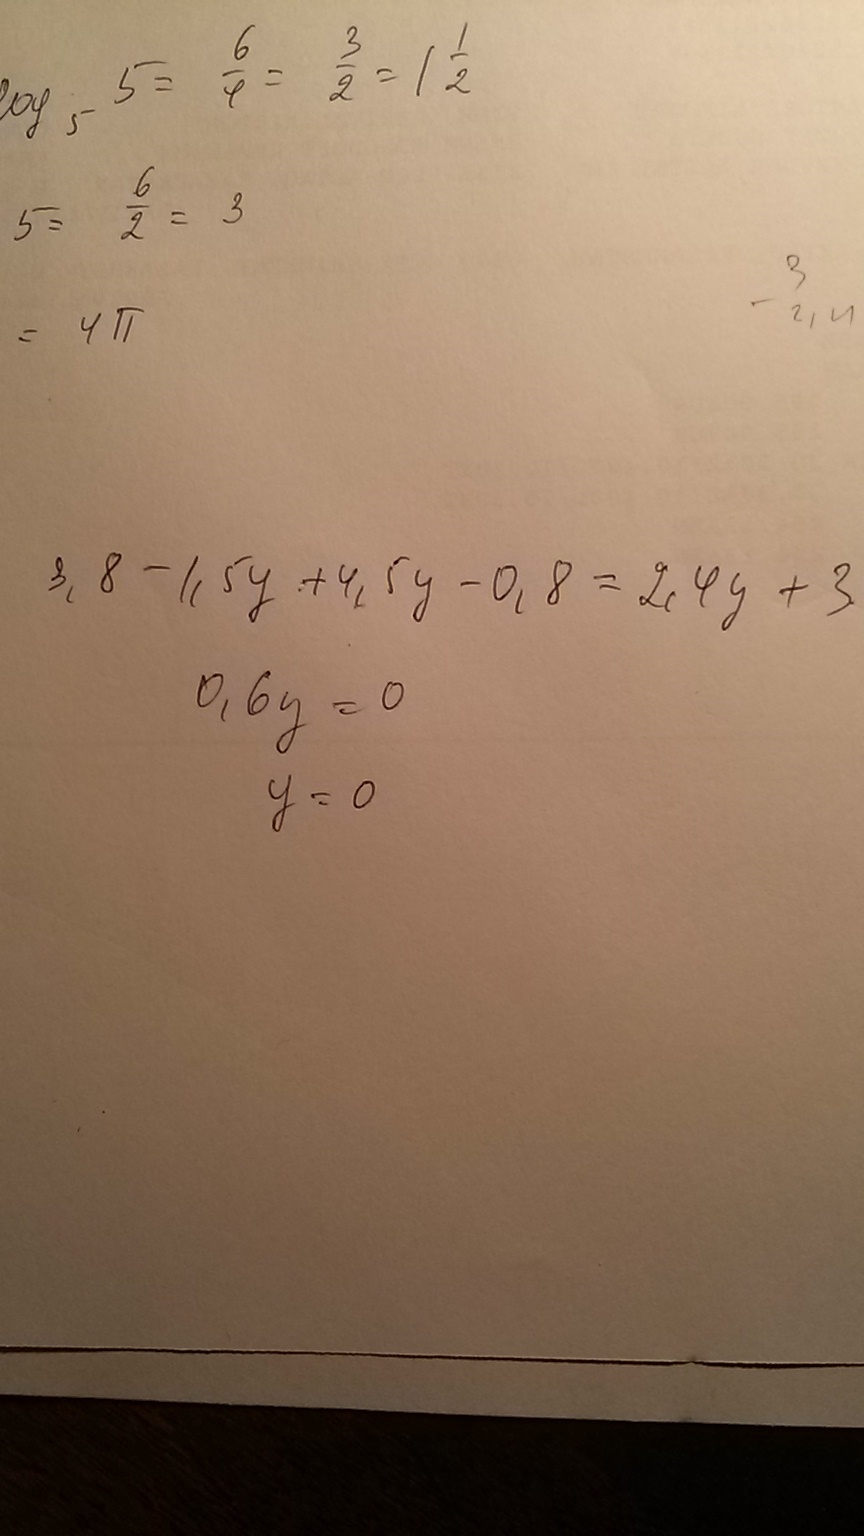 log₅ 5 = 6/4 = 3/2 = 1 1/2
5 = 6/2 = 3
= 4π
3
- 2,4
3,8 - 1,5y + 4,5y - 0,8 = 2,4y + 3
0,6y = 0
y = 0